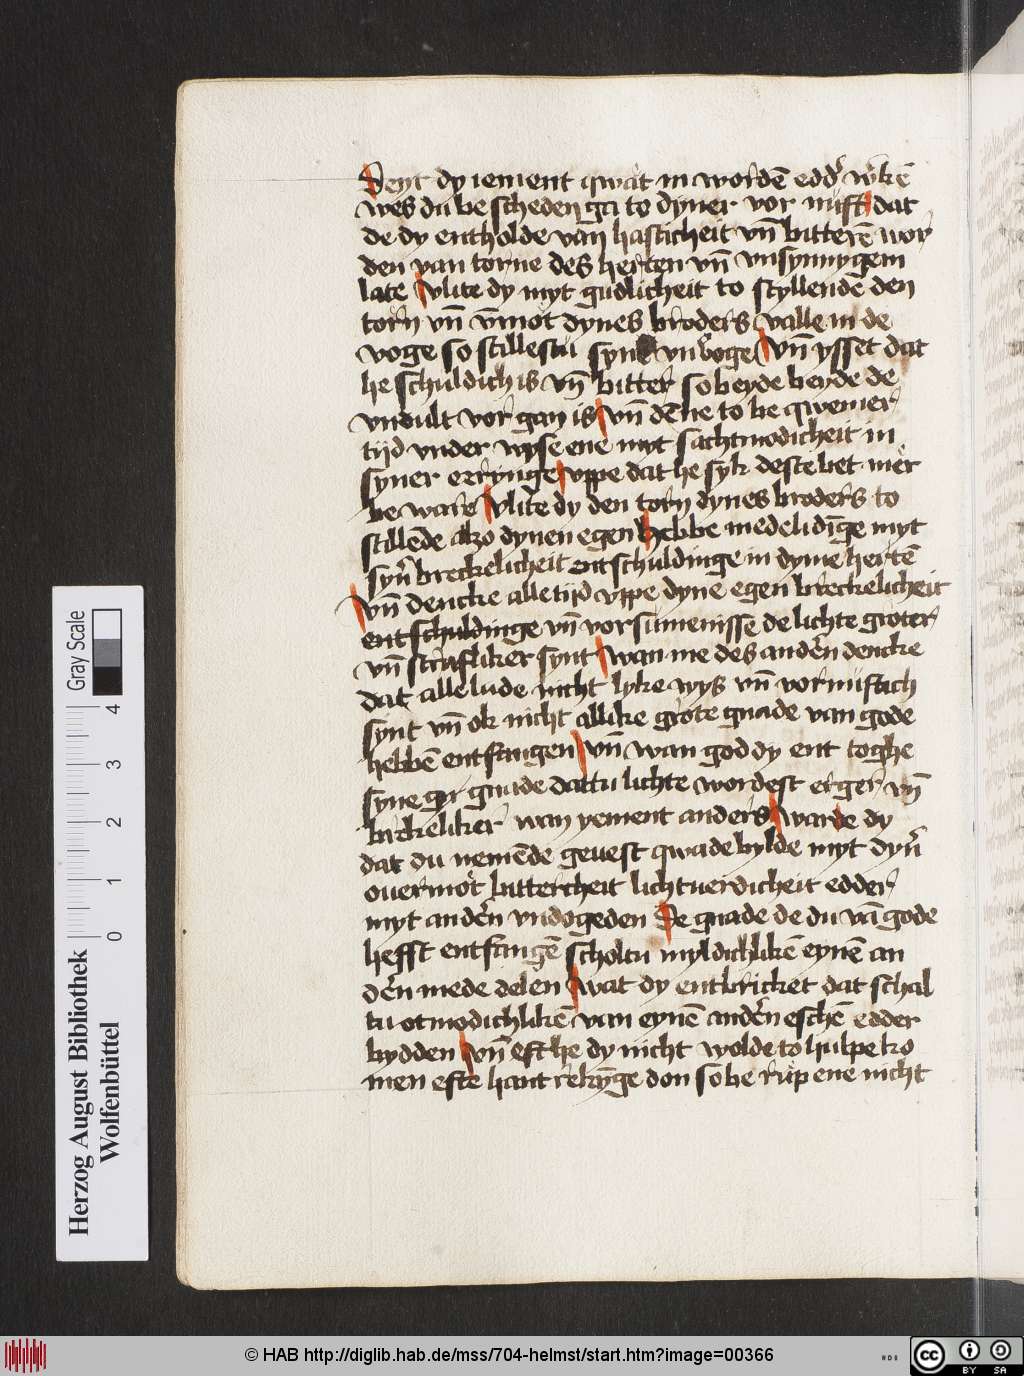 Deyt dy iement qwat in wordē edd' w'kē
wes du be scheden ga to dyner vor nuft dat
de dy entholde van hasticheit vn̄ bitterē wor
den van torne des herten vn̄ vnsynnygem
late vlite dy myt gudlicheit to styllendē den
torn vn̄ v̄mot dynes broders valle in de
voge so stillestu syn vnvoge vn̄ ysset dat
he schuldich is vn̄ bitter so beyde beyde de
vndult vor gan is vn̄ dēne to be qwemer
tijd vnder wyse ene myt sachtmodicheit in
syner errynge vppe dat he syk deste bet mer
be ware vlite dy den torn dynes broders to
stillēde alzo dynen egen hebbe medelidīge myt
syn' breckelicheit entschuldinge in dyme hertē
vn̄ dencke alle tijd vppe dyne egen breckelicheit
entschuldinge vn̄ vorsumenisse de lichte groter
vn̄ strafliker synt wan me des andern dencke
dat alle lude nicht lyke wys vn̄ vornuftich
synt vn̄ ok nicht allike grote gnade van gode
hebbē entfangen vn̄ wan god dy ent toghe
syne gnade dattu lichte wordest erger vn̄
brekeliker wan yement anders warde dy
dat du nemēde geuest qwade bylde myt dyn'
ouermot bittercheit lichtuerdicheit edder
myt andern vndogeden De gnade de du vā gode
hefft entfangē scholtu myldichlikē eynē an
dern mede delen wat dy entbricket dat schal
tu otmodichlikē van eynē andern eschē edder
bydden vn̄ eft he dy nicht wolde to hulpe ko
men efte hantrekȳge don so be rup ene nicht
Herzog August Bibliothek
Wolfenbüttel
Gray Scale
0 1 2 3 4
© HAB http://diglib.hab.de/mss/704-helmst/start.htm?image=00366
HAB
CC BY SA